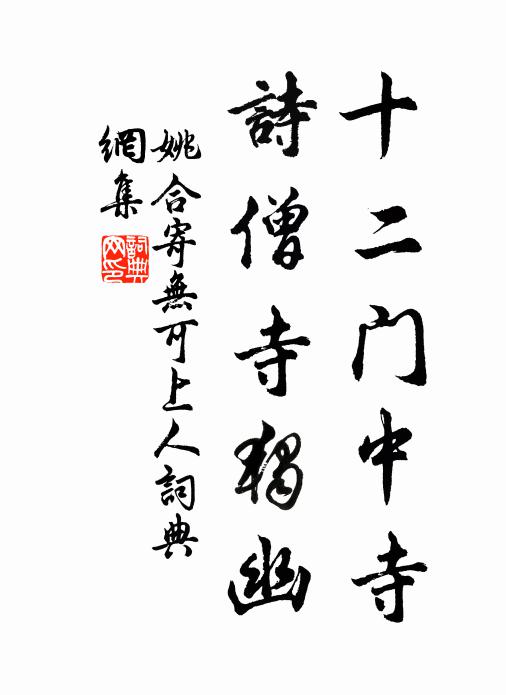 十二门中寺
詩僧寺獨幽
姚合寄無可上人詞典
網集
詞典
网印